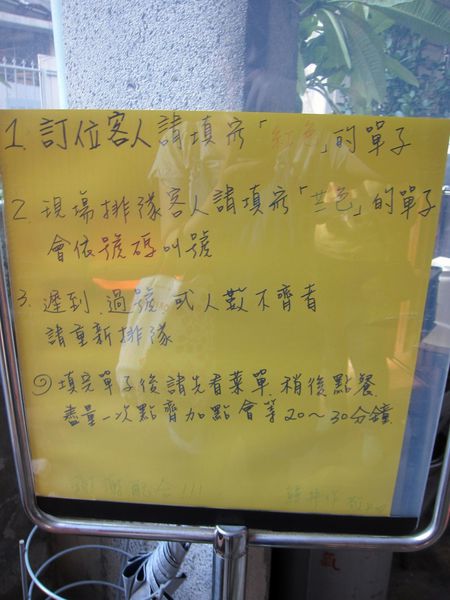 1. 訂位客人請填寫「紅色」的單子
2. 現場排隊客人請填寫「兰色」的單子
會依號碼叫號
3. 遲到.過號或人數不齊者
請重新排隊
填完單子後請先看菜單.稍後點餐
盡量一次點齊加點會等20~30分鐘
謝謝配合!!!